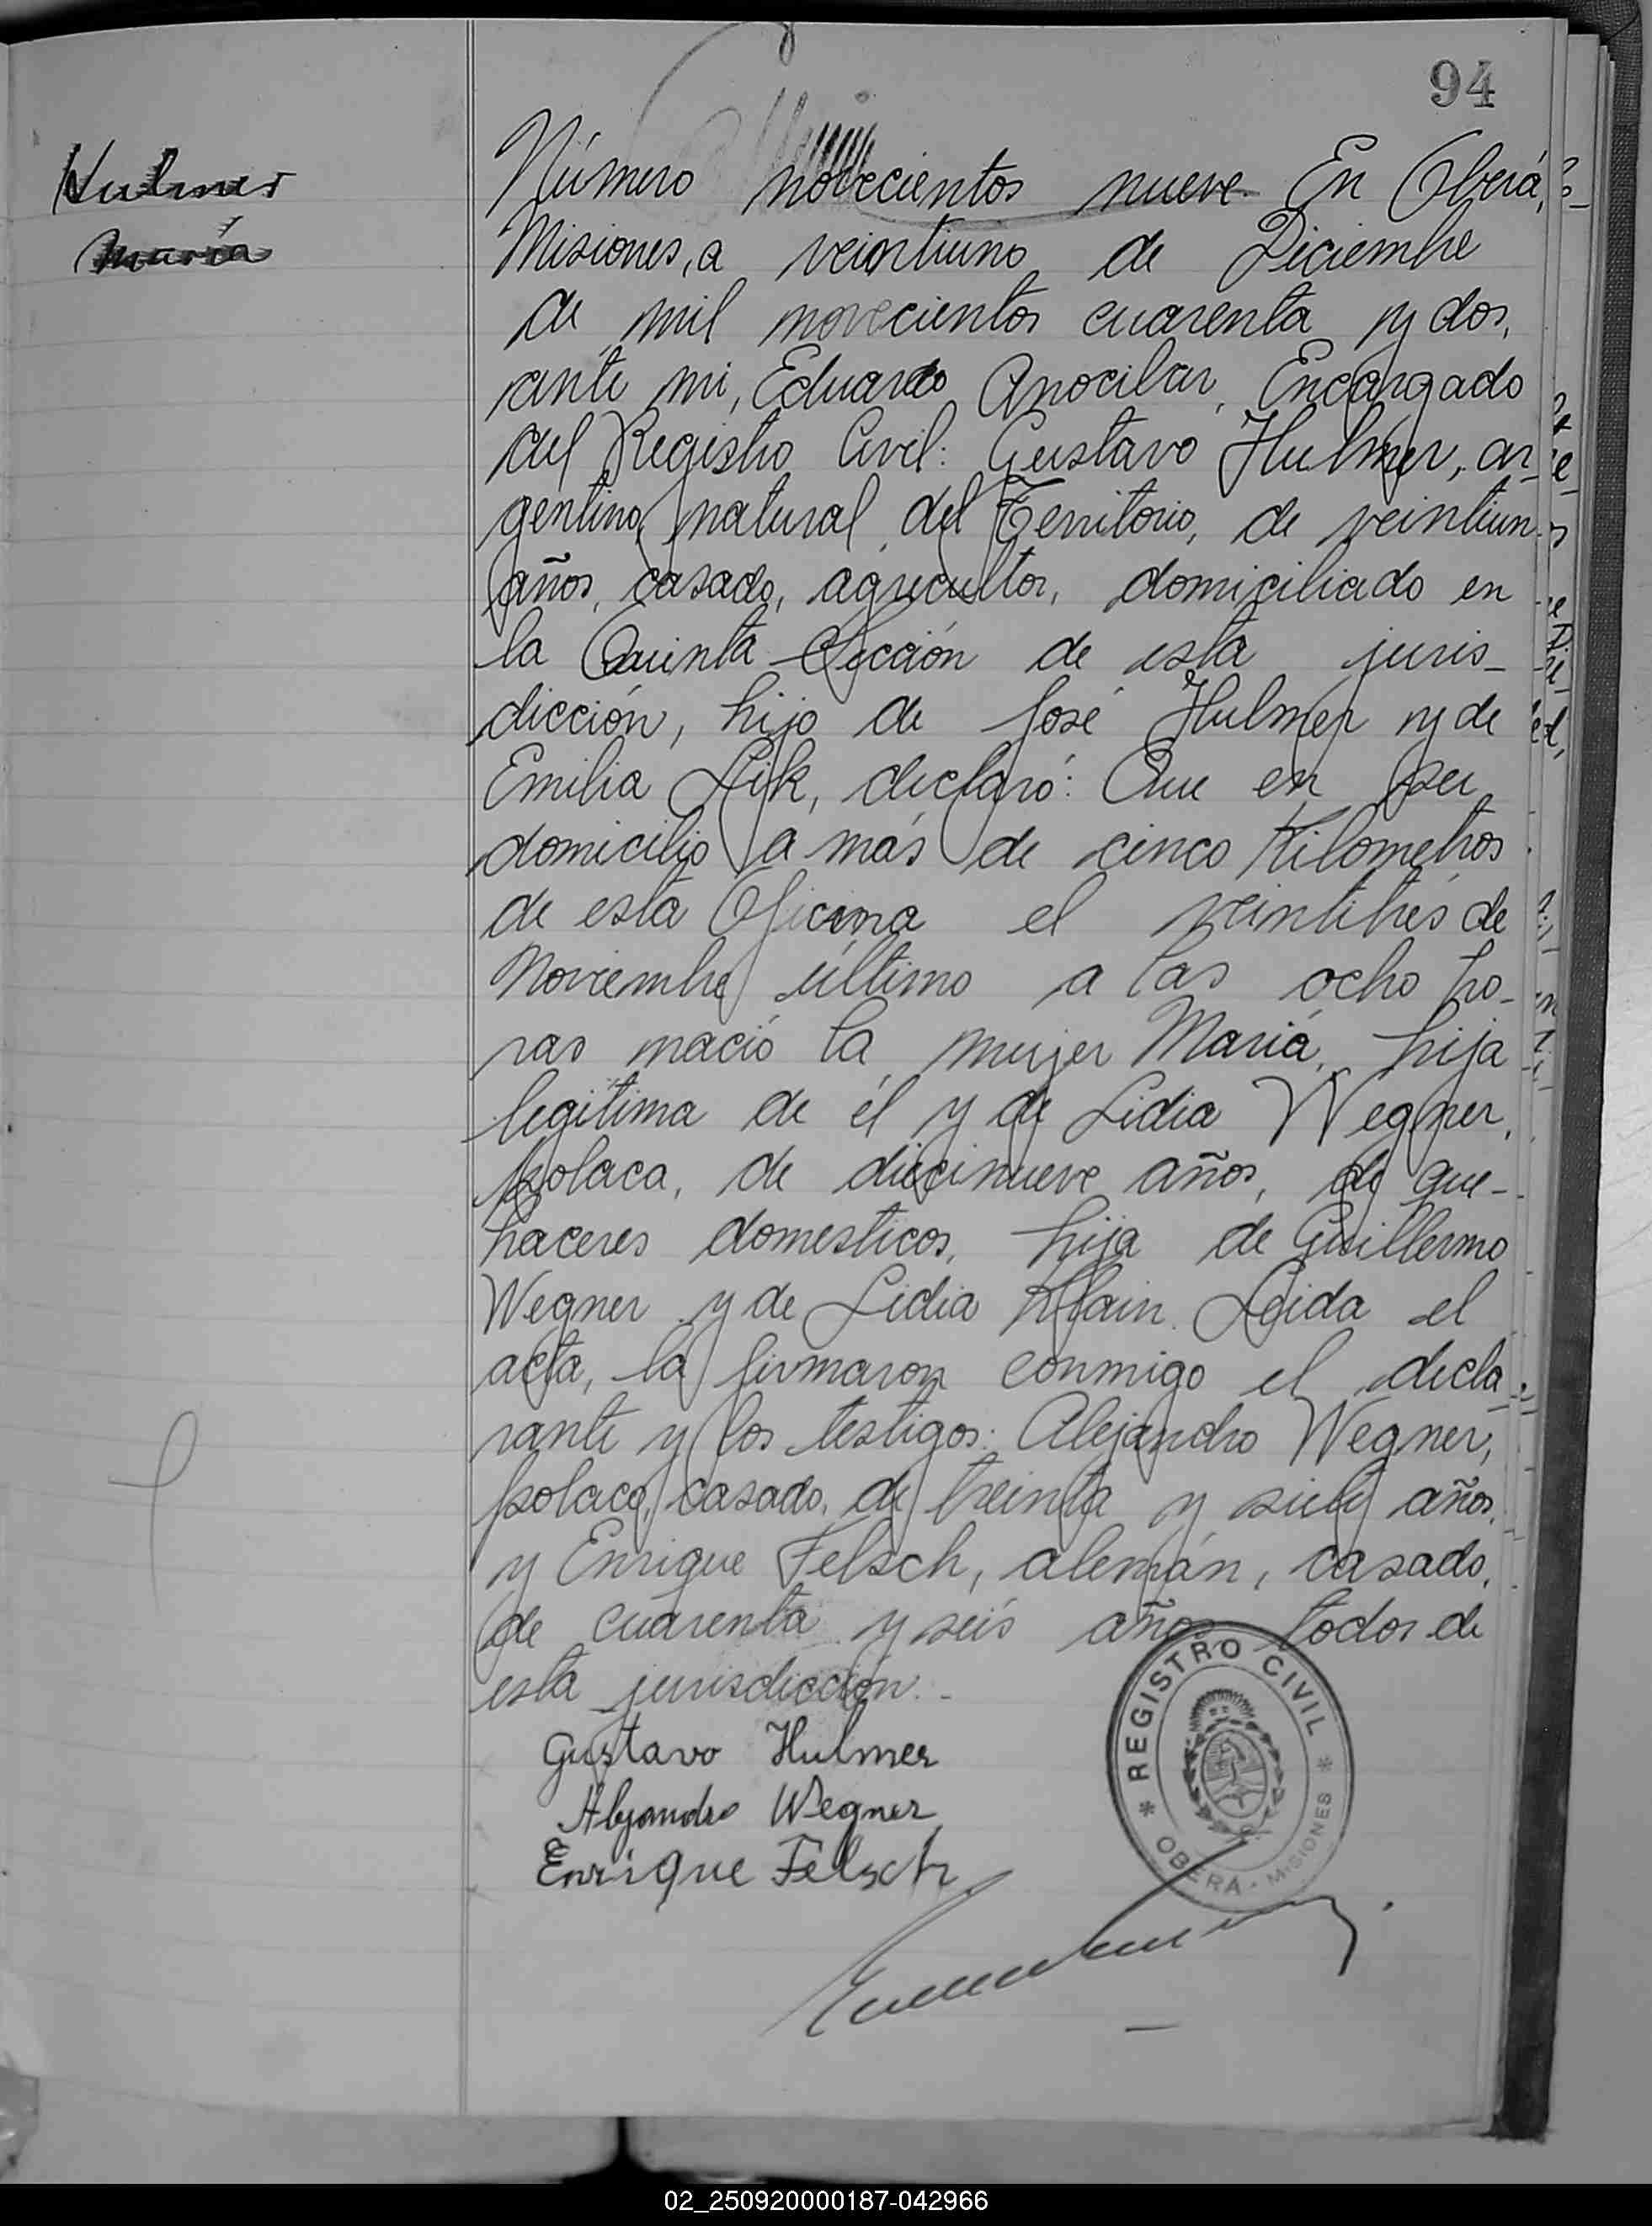 94
Hulmer
María
Número novecientos nueve. En Oberá,
Misiones, a veintiuno de Diciembre
de mil novecientos cuarenta y dos,
ante mi, Eduardo Anocibar, Encargado
del Registro Civil: Gustavo Hulmer, ar-
gentino, natural del Territorio, de veintiun
años, casado, agricultor, domiciliado en
la Quinta Sección de esta juris-
dicción, hijo de José Hulmer y de
Emilia declaró: Que en su
domicilio a más de cinco Kilometros
de esta Oficina el veintitrés de
Noviembre último a las ocho ho-
ras nació la mujer María, hija
legítima de él y de Lidia Wegner,
polaca, de diecinueve años, de que-
haceres domesticos, hija de Guillermo
Wegner y de Lidia Klain. Leida el
acta, la firmaron conmigo el decla
rante y los testigos: Alejandro Wegner,
polaco, casado, de treinta y siete años,
y Enrique Felsch, alemán, casado,
de cuarenta y seis años, todos de
esta jurisdicción.-
Gustavo Hulmer
Alejandro Wegner
Enrique Felsch
REGISTRO CIVIL
OBERA - MISIONES
02_250920000187-042966